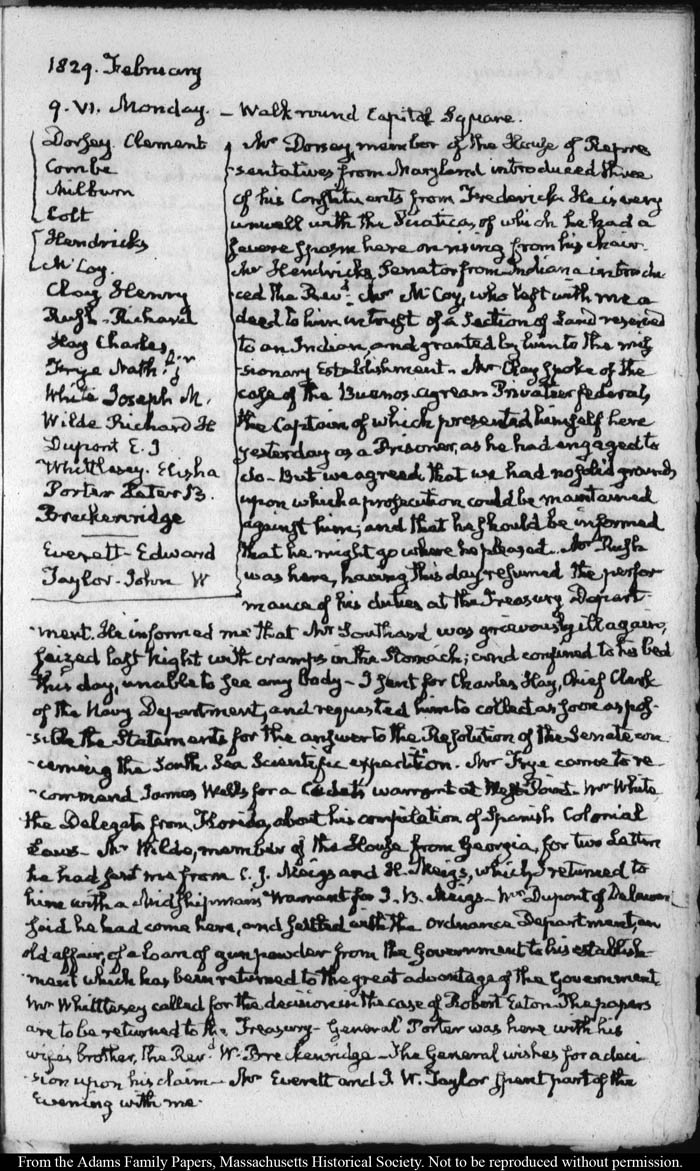 1829. February
9. VI. Monday. – Walk round Capitol Square.
Dorsey. Clement
Combe
Milburn
Colt
Hendricks
McCoy.
Clay Henry
Rush - Richard
Hay Charles
Frye Nath.l jr
White Joseph M.
Wilde Richard H
Dupont E. I
Whittlesey. Elisha
Porter Peter B.
Breckenridge
Everett - Edward
Taylor - John W
Mr Dorsey, member of the House of Repre
-sentatives from Maryland introduced three
of his Constituents from Frederick. He is very
unwell with the Sciatica, of which he had a
severe spasm here on rising from his chair.
Mr Hendricks, Senator from Indiana introdu-
-ced the Revd. Mr McCoy, who left with me a
deed to him in trust of a Section of Land reserved
to an Indian, and granted by him to the mis
-sionary Establishment. Mr Clay spoke of the
case of the Buenos-ayrean Privateer federal,
the Captain of which presented himself here
yesterday as a Prisoner, as he had engaged to
do - But we agreed that we had no solid grounds
upon which a prosecution could be maintained
against him; and that he should be informed
that he might go where he pleased. Mr Rush
was here, having this day resumed the perfor
mance of his duties at the Treasury Depart-
-ment. He informed me that Mr Southard was grievously ill again,
seized last Night with cramps in the Stomach; and confined to his bed
this day, unable to see any body - I sent for Charles Hay, Chief Clerk
of the Navy Department, and requested him to collect as soon as pos-
-sible the Statements for the answer to the Resolution of the Senate con
-cerning the South-Sea Scientific expedition. Mr Frye came to re-
-commend James Wells for a Cadets warrant at West-Point. Mr White
the Delegate from Florida, about his compilation of Spanish Colonial
Laws - Mr Wilde, member of the House from Georgia, for two Letters
he had sent me from C. J. Meigs and H. Meigs, which I returned to
him with a Midshipman's Warrant for J. B. Meigs - Mr Dupont of Delaware
said he had come here, and settled with the Ordnance Department, an
old affair, of a loan of gunpowder from the Government to his establish-
-ment which has been returned to the great advantage of the Government.
Mr Whittlesey called for the decision in the case of Robert Eaton. The papers
are to be returned to the Treasury - General Porter was here with his
wife's brother, the Revd W. Breckenridge - The General wishes for a deci
-sion upon his claim - Mr Everett and J. W. Taylor spent part of the
Evening with me.
From the Adams Family Papers, Massachusetts Historical Society. Not to be reproduced without permission.